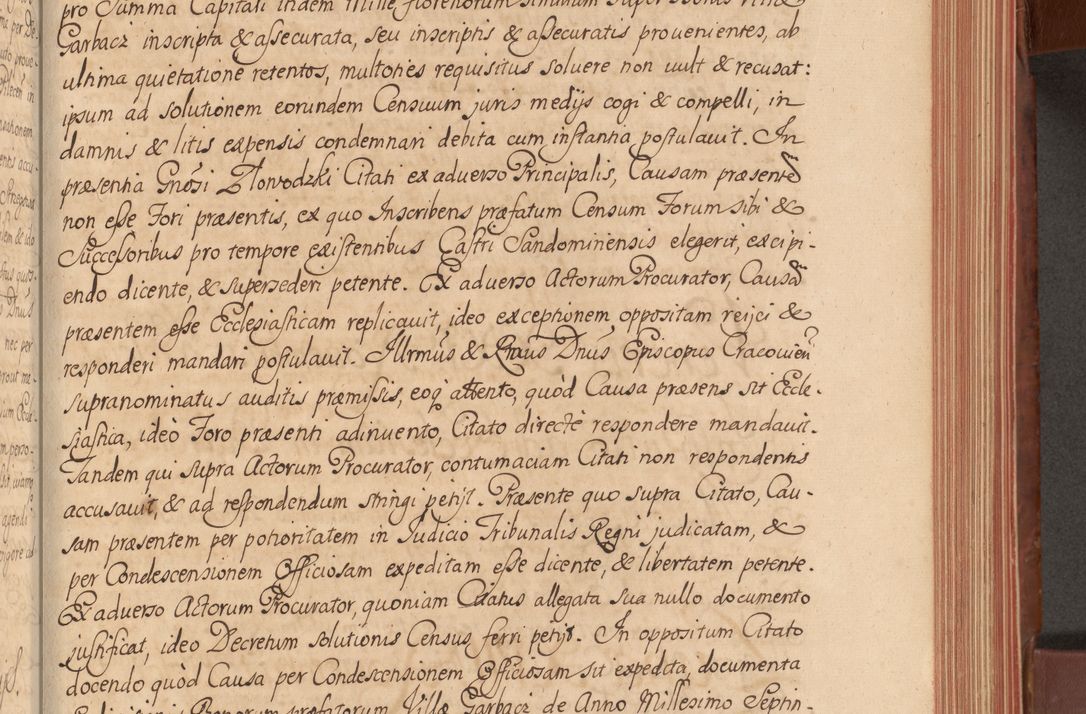 pro Summa Capitali indem Mille florenorum similium super Bonis Villæ
Garbacz inscripta & aſsecurata, seu inscriptis & aſsecuratis provenientes, ab
ultima quietatione retentos, multoties requisitus soluere non vult & recusat:
ipsum ad solutionem eorundem Censuum juris medijs cogi & compelli, in
damnis & litis expensis condemnari debita cum inſtantia poſtulauit. In
præsentia Gnosi Złowodzki Citati ex adverso Principalis, Causam præsente
non eſse Fori præsentis, ex quo Inscribens præfatum Censum Forum sibi &
Succeſsoribus pro tempore exiſtentibus Caſtri Sandomiriensis elegerit, excipi-
endo dicente, & supersederi petente. Ex adverso Actorum Procurator, Causã
præsentem eſse Eccleſiaſticam replicauit, ideo exceptionem oppositam reijci &
responderi mandari poſtulauit. Illrmus & Rndus Dnus Episcopus Cracovien
supranominatus auditis præmiſsis, eoq attento, quòd Causa præsens sit Eccle-
siaſtica, ideò Foro præsenti adinvento, Citato directè respondere mandavit.
Tandem qui supra Actorum Procurator, contumaciam Citati non respondentis
accusavit, & ad reſpondendum stringi petijt. Præsente quo supra Citato, Cau-
sam præsentem per potioritatem in Judicio Tribunalis Regni judicatam, &
per Condescensionem Officiosam expeditam eſse dicente, & libertatem petente.
Ex adverso Actorum Procurator, quoniam Citatus allegata sua nullo documento
juſtificat, ideo Decretum solutionis Census ferri petijt. In oppositum Citato
docendo quòd Causa per Condescensionem Officiosam sit expedita, documenta
Bonorum præfatorum Villæ Garbacz de Anno Millesimo Septin-